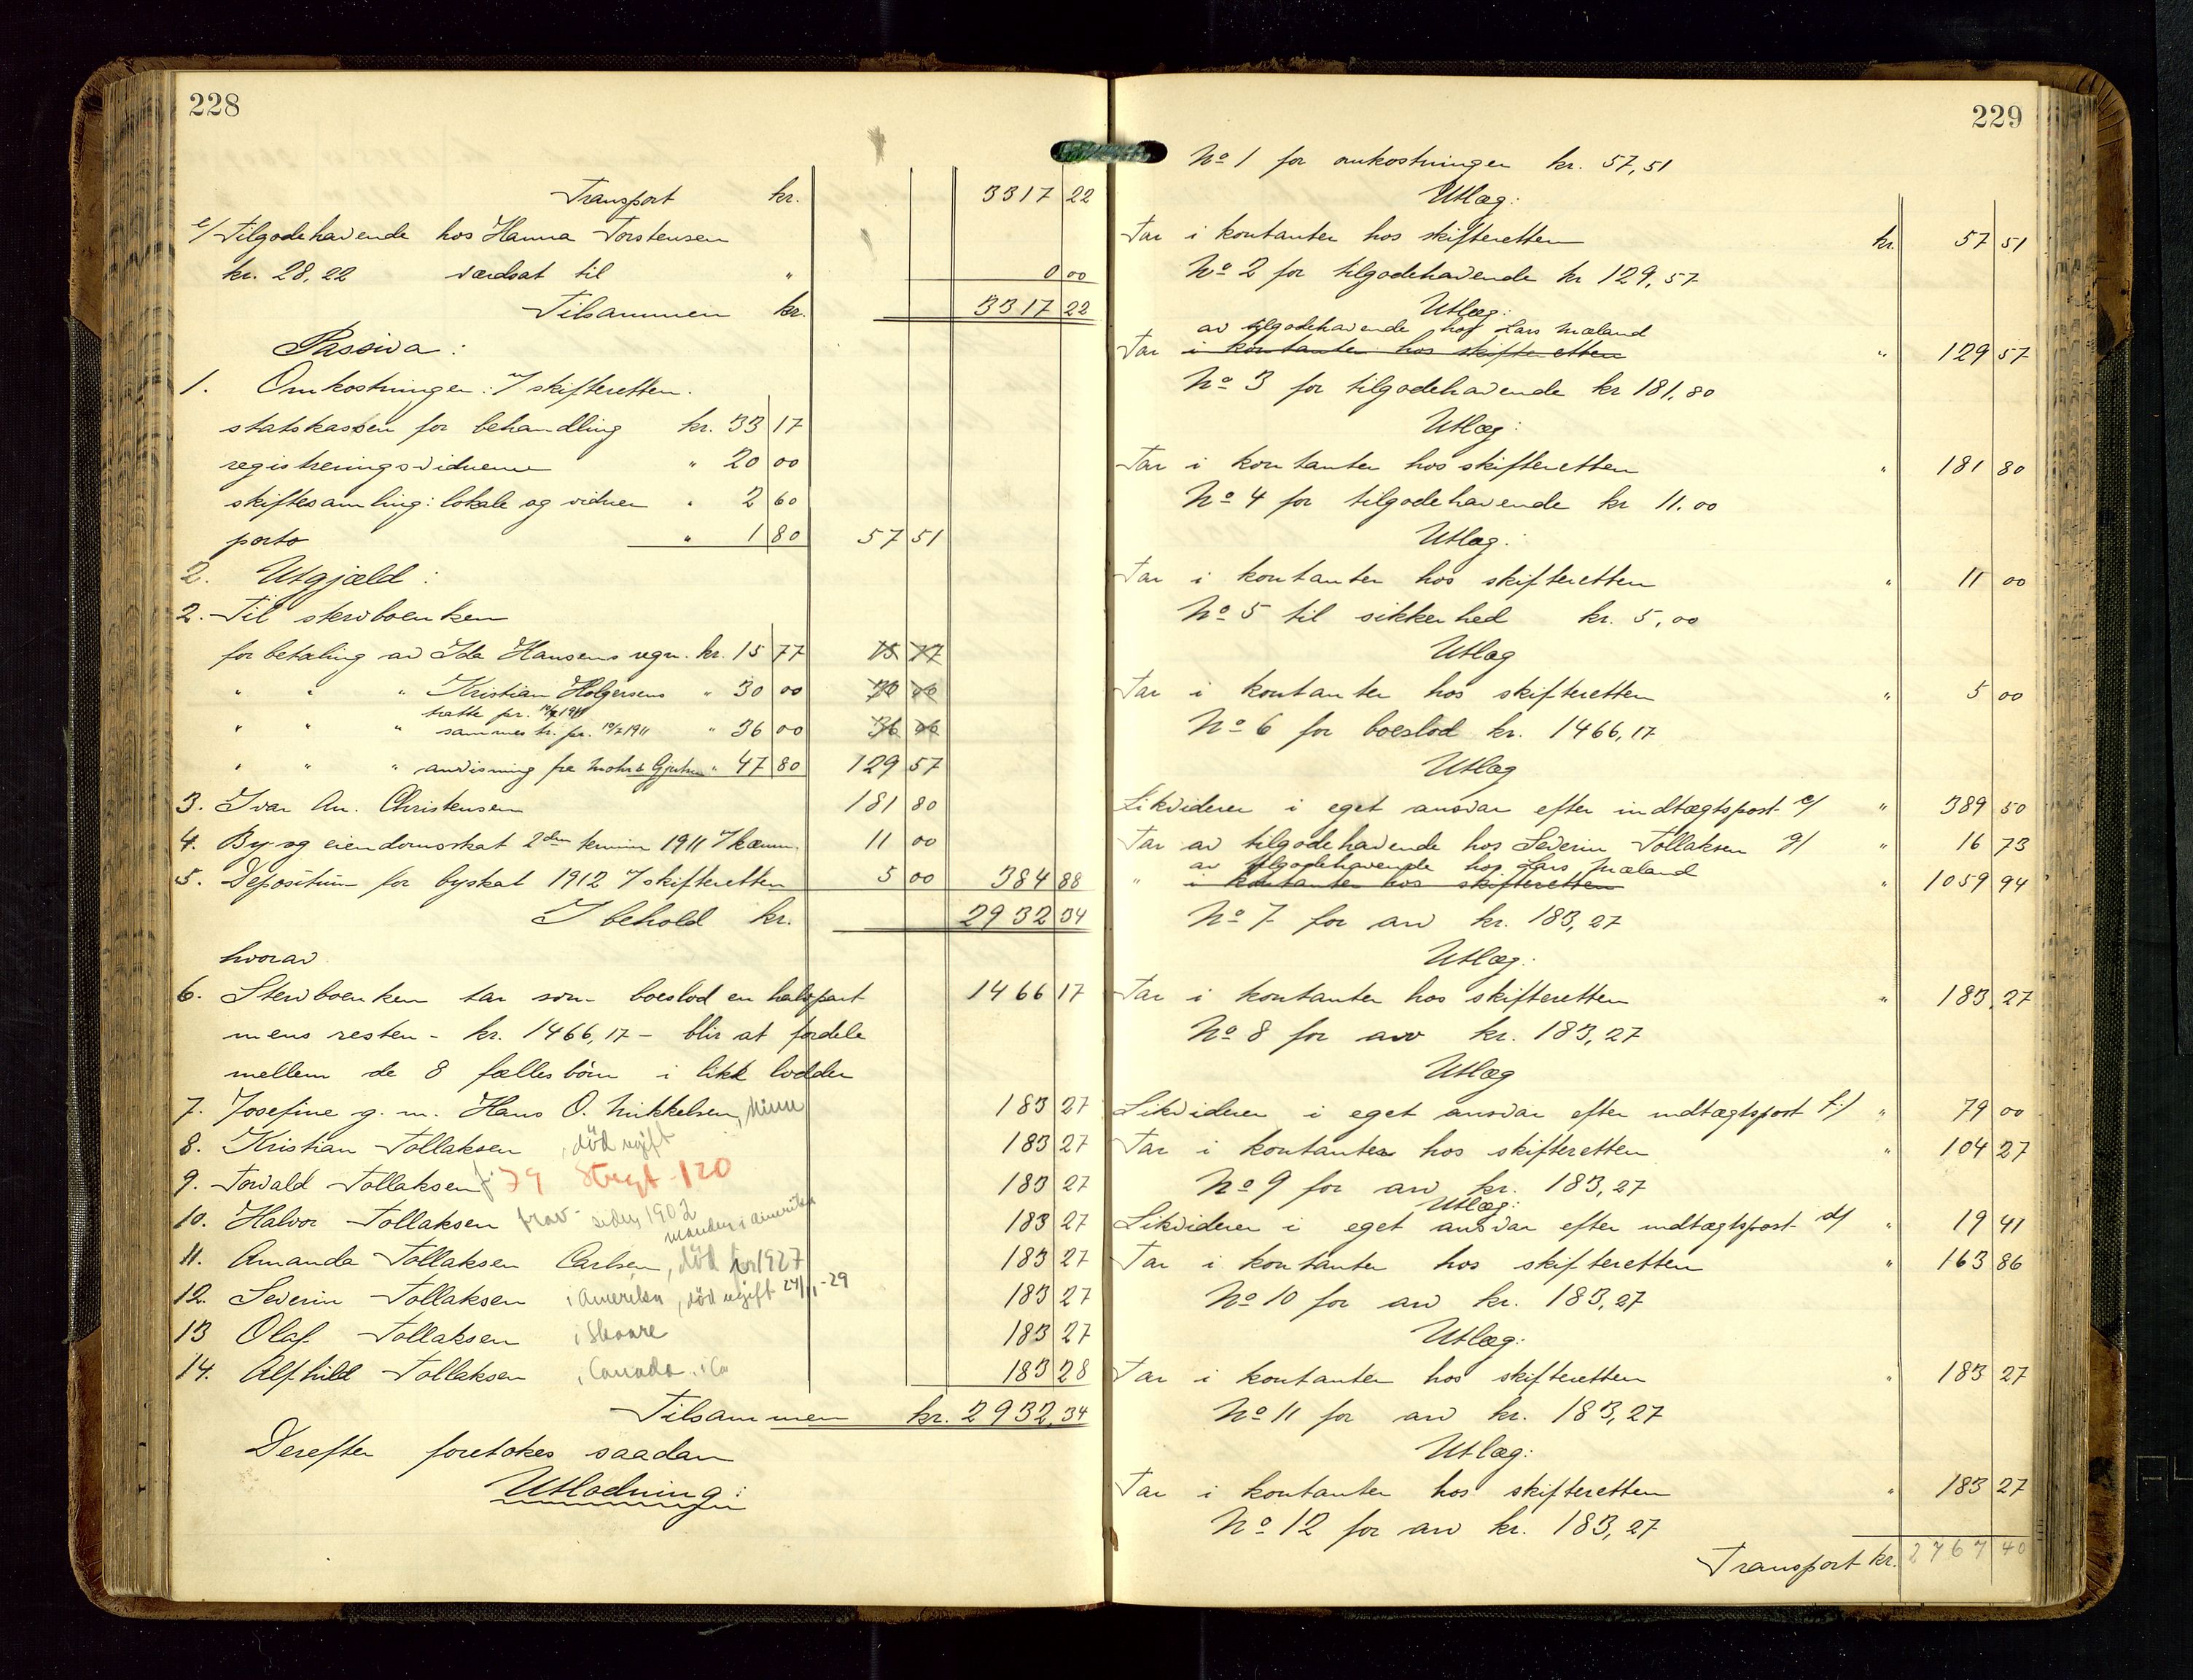 228
Transport kr. 3317 22
e/ Tilgodehavende hos Hanna Torstensen
kr. 28,22 værdsat til " 0 00
Tilsammen kr. 3317 22
Passiva:
1. Omkostninger: 7 skifteretten.
statskassen for behandling kr. 33 17
registreringsvidnerne " 20 00
skiftesamling: lokale og vidner " 2 60
porto " 1 80 57 51
2. Utgjæld:
2. Til stervboenken
for betaling av Ida Hansens regn. kr. 15 77 15 77
" " " Kristian Holgersens " 30 00 30 00
tratte pr.
" " " sammes tr. pr. 10/2 1911 " 36 00 36 00
" " " anvisning fra Mohr & " 47 80 129 57
3. Ivar An. Christensen 181 80
4. By og eiendomsskat 2den termin 1911 7 kæmn. 11 00
5. Depositum for byskat 1912 7 skifteretten 5 00 384 88
I behold kr. 2932 34
hvorav
6. Stervboenken tar som boeslod en halvpart 1466 17
mens resten - kr. 1466,17 - blir at fordele
mellem de 8 fællesbörn i likе lodder
7. Josefine g. m. Hans O. Mikkelsen, 183 27
8. Kristian Tollaksen , död ugift 183 27
9. Torvald Tollaksen f. 79 Strgt - 120 183 27
10. Halvor Tollaksen siden 1902 i Amerika 183 27
11. Amanda Tollaksen Carlsen, död 1927 183 27
12. Severin Tollaksen i Amerika, död ugift 24/11-29 183 27
13 Olaf Tollaksen i Skaare 183 27
14. Alfhild Tollaksen , Canada. 183 28
Tilsammen kr. 2932,34
Derefter foretokes saadan
Utlodning:
229
No 1 for omkostninger kr. 57,51
Utlæg:
Tar i kontanter hos skifteretten kr. 57 51
No 2 for tilgodehavende kr 129,57
Utlæg:
av tilgodehavende hos Lars Mæland
Tar i kontanter hos skifteretten " 129 57
No 3 for tilgodehavende kr 181,80
Utlæg:
Tar i kontanter hos skifteretten " 181 80
No 4 for tilgodehavende kr 11.00
Utlæg:
Tar i kontanter hos skifteretten " 11 00
No 5 til sikkerhed kr. 5,00
Utlæg
Tar i kontanter hos skifteretten " 5 00
No 6 for boeslod kr. 1466,17
Utlæg
Likviderer i eget ansvar efter indtægtspost e/ " 389 50
Tar av tilgodehavende hos Severin Tollaksen g/ " 16 73
av tilgodehavende hos Lars Mæland
" i kontanter hos skifteretten " 1059 94
No 7 for arv kr. 183,27
Utlæg:
Tar i kontanter hos skifteretten " 183,27
No 8 for arv kr. 183,27
Utlæg
Likviderer i eget ansvar efter indtægtspost f:/ " 79 00
Tar i kontanter hos skifteretten " 104 27
No 9 for arv kr. 183,27
Utlæg:
Likviderer i eget ansvar efter indtægtspost d/ " 19 41
Tar i kontanter hos skifteretten " 163 86
No 10 for arv kr. 183,27
Utlæg:
Tar i kontanter hos skifteretten " 183 27
No 11 for arv kr. 183,27
Utlæg:
Tar i kontanter hos skifteretten " 183 27
No 12 for arv kr. 183,27
Transport kr. 2767 40